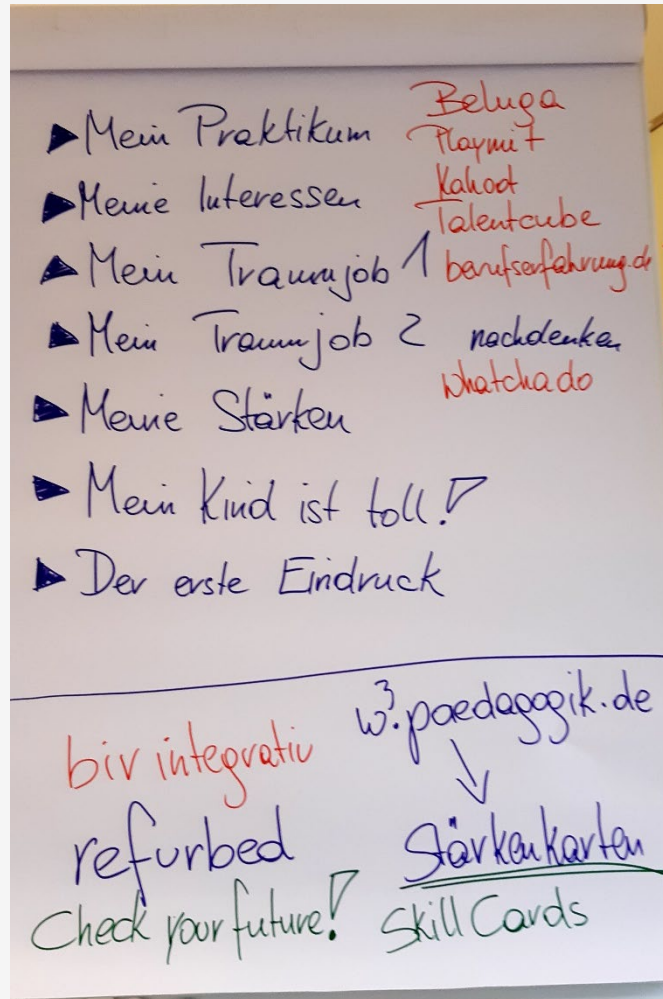 ▶ Mein Praktikum
▶ Meine Interessen
▶ Mein Traumjob 1
▶ Mein Traumjob 2
▶ Meine Stärken
▶ Mein Kind ist toll!
▶ Der erste Eindruck
Beluga
Playmit
Kahoot
Talentcube
berufserfahrung.de
nachdenken
whatchado
biv integrativ
refurbed
Check your future!
w³.paedagogik.de
↓
Stärkenkarten
Skill Cards